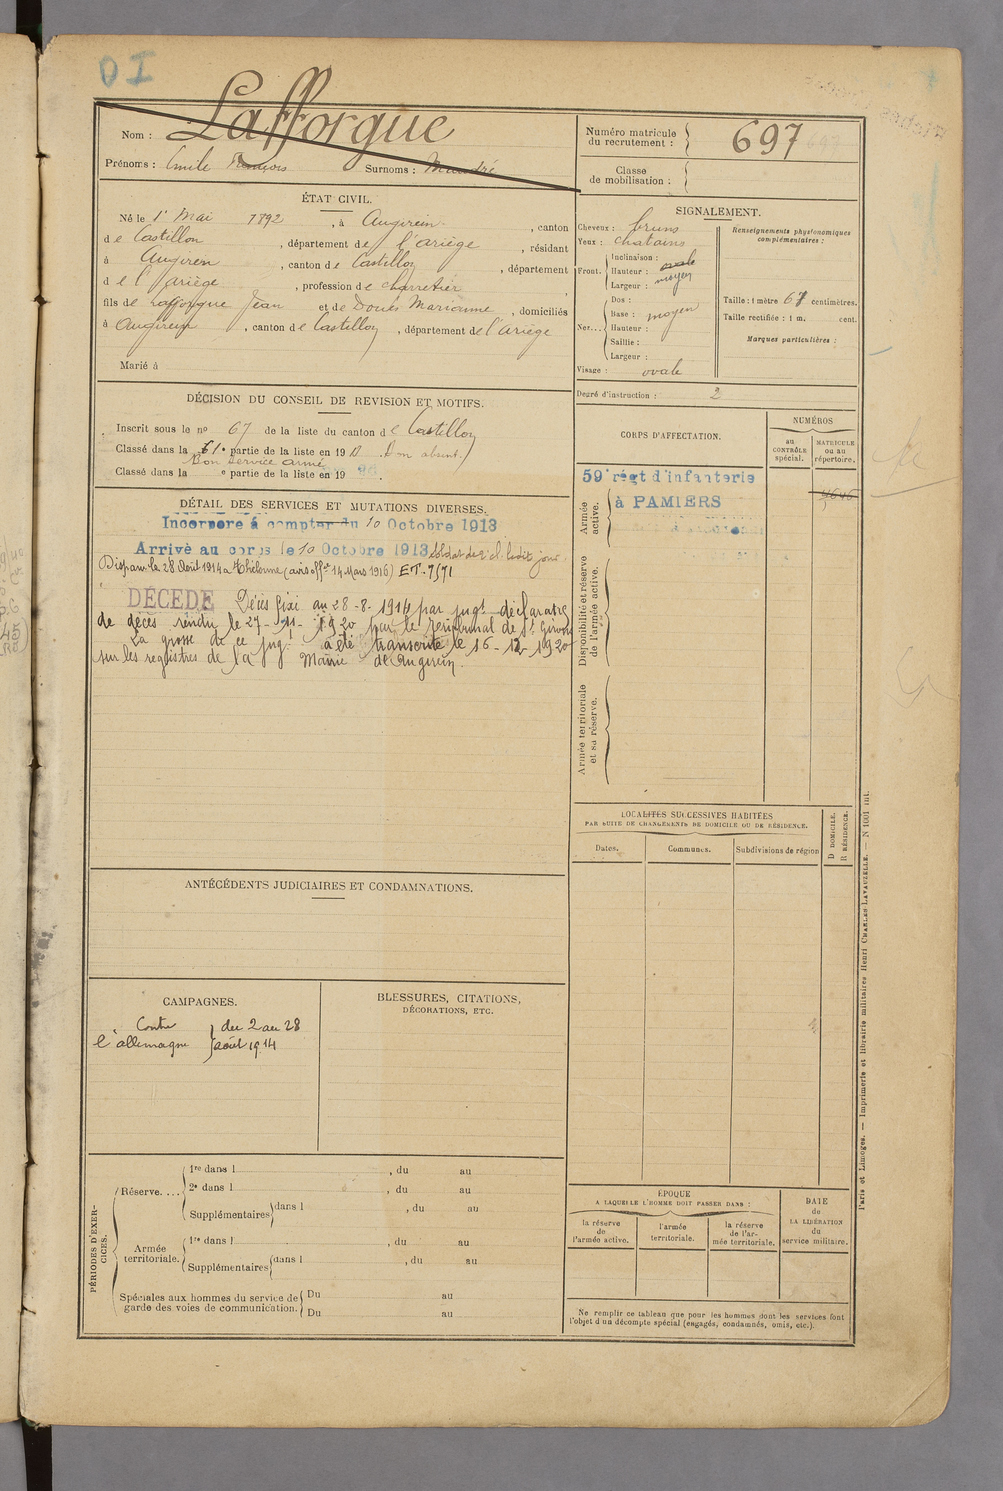 OI
Nom : Lafforgue
Prénoms : Emile François Surnoms :
Numéro matricule du recrutement : 697
Classe de mobilisation :
ÉTAT CIVIL.
Né le 1er Mai 1892, à Augirein, canton
de Castillon, département de l'ariège, résidant
à Augirein, canton de Castillon, département
de l'ariège, profession de charretier
fils de Lafforgue Jean et de Doués Marianne, domiciliés
à Augirein, canton de Castillon, département de l'Ariège
Marié à
SIGNALEMENT.
Cheveux : bruns
Yeux : chatains
Front. Inclinaison :
Hauteur : ovale
Largeur : moyen
Nez... Dos :
Base : moyen
Hauteur :
Saillie :
Largeur :
Visage : ovale
Renseignements physionomiques complémentaires :
Taille : 1 mètre 67 centimètres.
Taille rectifiée : 1 m. cent.
Marques particulières :
Degré d'instruction : 2
DÉCISION DU CONSEIL DE REVISION ET MOTIFS.
Inscrit sous le no 67 de la liste du canton de Castillon
Classé dans la 1e partie de la liste en 19 Bon absent.
Bon service armé
Classé dans la e partie de la liste en 19 .
DÉTAIL DES SERVICES ET MUTATIONS DIVERSES.
Incorporé à compter du 10 Octobre 1913
Arrivé au corps le 10 Octobre 1913 soldat de 2e cl. ledit jour
Disparu le 28 Août 1914 à Thélonne (avis offel 14 Mars 1916) ET-7571
DÉCÉDÉ Décès fixé au 28-8-1914 par jugt déclaratif
de décès rendu le 27-11-1920 par le tribunal de St Girons
La grosse de ce jugt a été transcrite le 16-12-1920
sur les registres de la Mairie de Augirein.
CORPS D'AFFECTATION.
NUMÉROS
au CONTRÔLE spécial.
MATRICULE ou au répertoire.
Armée active.
59e régt d'infanterie
à PAMIERS
4646
Disponibilité et réserve de l'armée active.
Armée territoriale et sa réserve.
LOCALITÉS SUCCESSIVES HABITÉES
PAR SUITE DE CHANGEMENTS DE DOMICILE OU DE RÉSIDENCE.
Dates.
Communes.
Subdivisions de région
D DOMICILE.
R RÉSIDENCE.
ANTÉCÉDENTS JUDICIAIRES ET CONDAMNATIONS.
CAMPAGNES.
Contre l'allemagne } du 2 au 28 août 1914
BLESSURES, CITATIONS,
DÉCORATIONS, ETC.
PÉRIODES D'EXERCICES.
Réserve....
1re dans l , du au
2e dans l , du au
Supplémentaires dans l , du au
Armée territoriale.
1re dans l , du au
Supplémentaires dans l , du au
Spéciales aux hommes du service de garde des voies de communication.
Du au
Du au
ÉPOQUE
A LAQUELLE L'HOMME DOIT PASSER DANS :
la réserve de l'armée active.
l'armée territoriale.
la réserve de l'armée territoriale.
DATE de LA LIBÉRATION du service militaire.
Ne remplir ce tableau que pour les hommes dont les services font
l'objet d'un décompte spécial (engagés, condamnés, omis, etc.).
Paris et Limoges. — Imprimerie et librairie militaires Henri CHARLES-LAVAUZELLE. — N 1001 int.